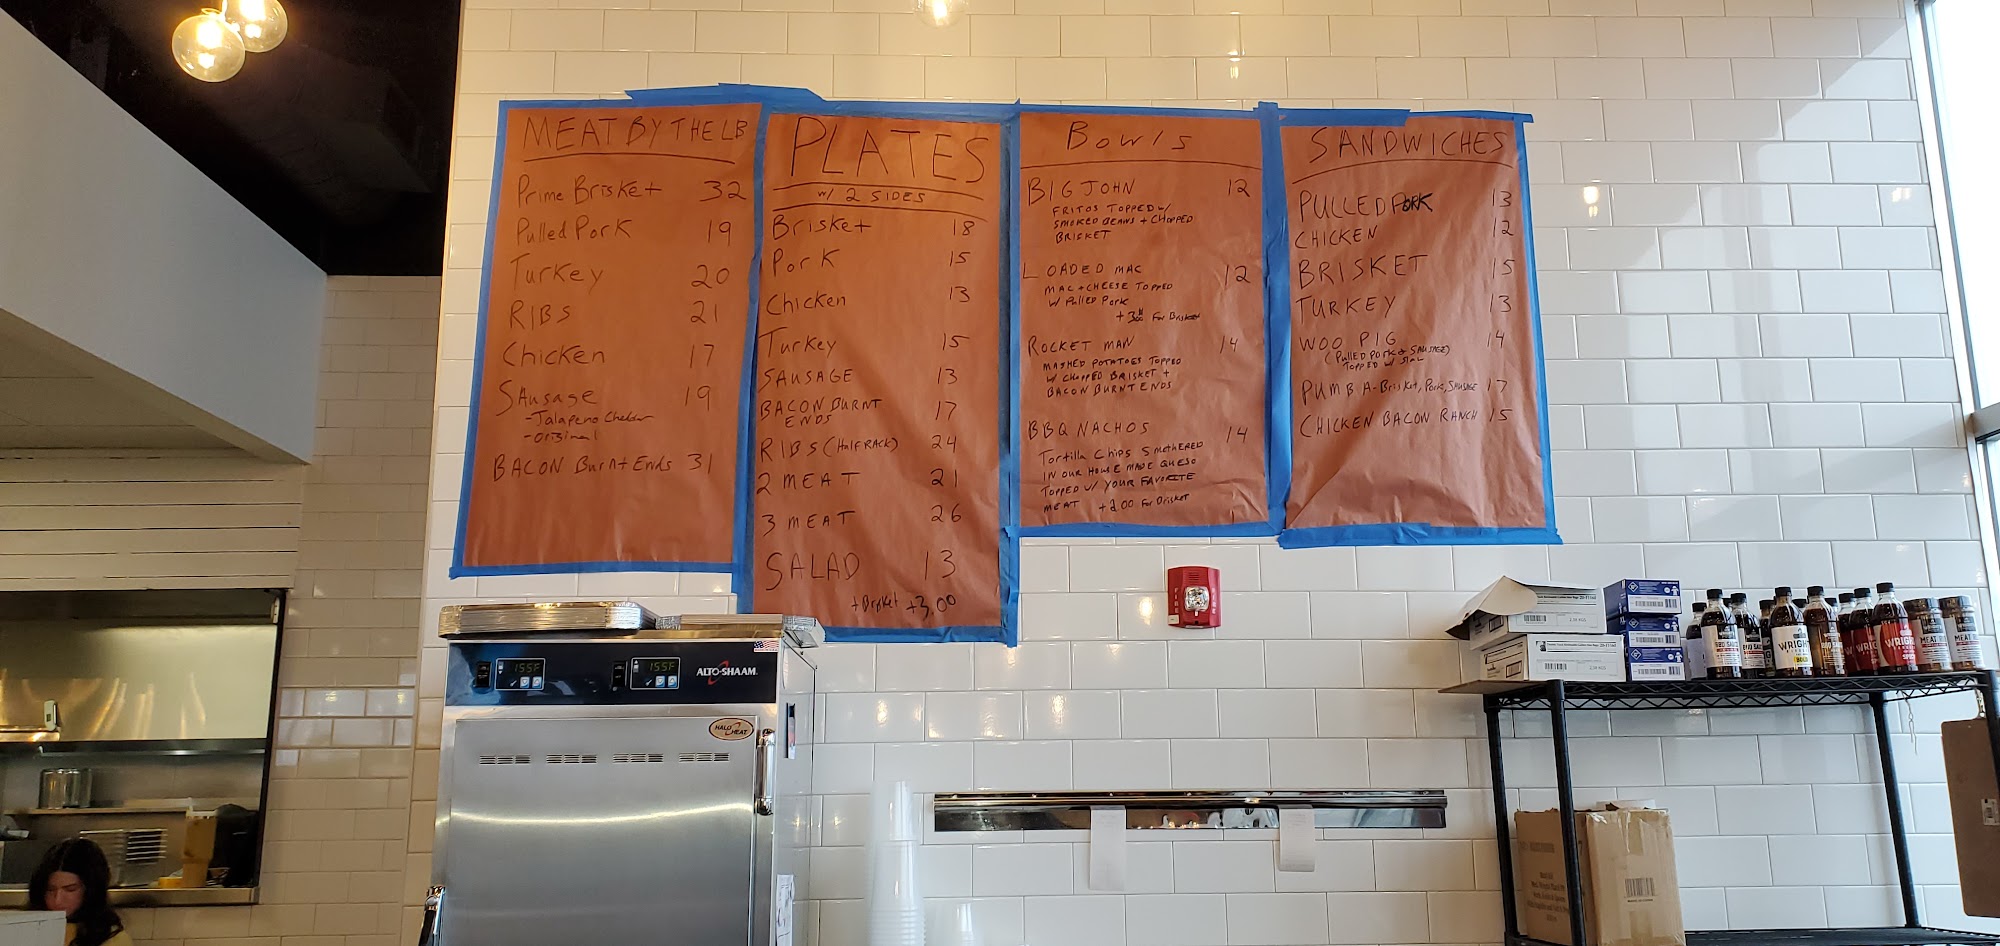 MEAT BY THE LB
Prime Brisket 32
Pulled Pork 19
Turkey 20
RIBS 21
Chicken 17
SAusage 19
- Jalapeno Cheddar
- original
BACON Burnt Ends 31
PLATES
w/ 2 SIDES
Brisket 18
Pork 15
Chicken 13
Turkey 15
SAUSAGE 13
BACON BURNT
ENDS 17
RIBS (HALF RACK) 24
2 MEAT 21
3 MEAT 26
SALAD 13
+ Brisket +3.00
Bowls
BIG JOHN 12
FRITOS TOPPED w/
SMOKED BEANS + CHOPPED
BRISKET
LOADED MAC 12
MAC + CHEESE TOPPED
W/ Pulled Pork
+ 3.00 For Brisket
ROCKET MAN 14
MASHED POTATOES TOPPED
W/ CHOPPED BRISKET +
BACON BURNT ENDS
BBQ NACHOS 14
Tortilla Chips SMOTHERED
IN OUR HOUSE MADE QUESO
TOPPED W/ YOUR FAVORITE
MEAT +2.00 For Brisket
SANDWICHES
PULLED PORK 13
CHICKEN 12
BRISKET 15
TURKEY 13
WOO PIG 14
(PULLED PORK & SAUSAGE)
TOPPED W/ SLAW
PUMBA - Brisket, Pork, SAUSAGE 17
CHICKEN BACON RANCH 15
FIRE
155F
155F
ALTO-SHAAM
HALO HEAT
WRIGHT
WRIGHT
MEAT
MEAT